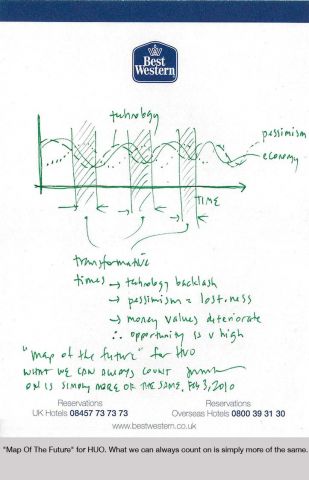 Best
Western
technology
pessimism
economy
TIME
transformative
times → technology backlash
→ pessimism = lost.ness
→ money values deteriorate
∴ opportunity is v high
"Map of the future" for HUO
WHAT WE CAN ALWAYS COUNT
ON IS SIMPLY MORE OF THE SAME, FEB 3, 2010
Reservations
UK Hotels 08457 73 73 73
Reservations
Overseas Hotels 0800 39 31 30
www.bestwestern.co.uk
"Map Of The Future" for HUO. What we can always count on is simply more of the same.